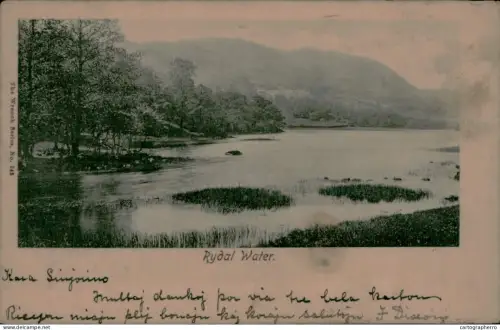 The Wrench Series, No. 143
Rydal Water.
Kara Sinjorino
Multaj dankoj por via tre bela karton
Ricevu miajn plej bonajn kaj korajn salutojn J
delcampe.net